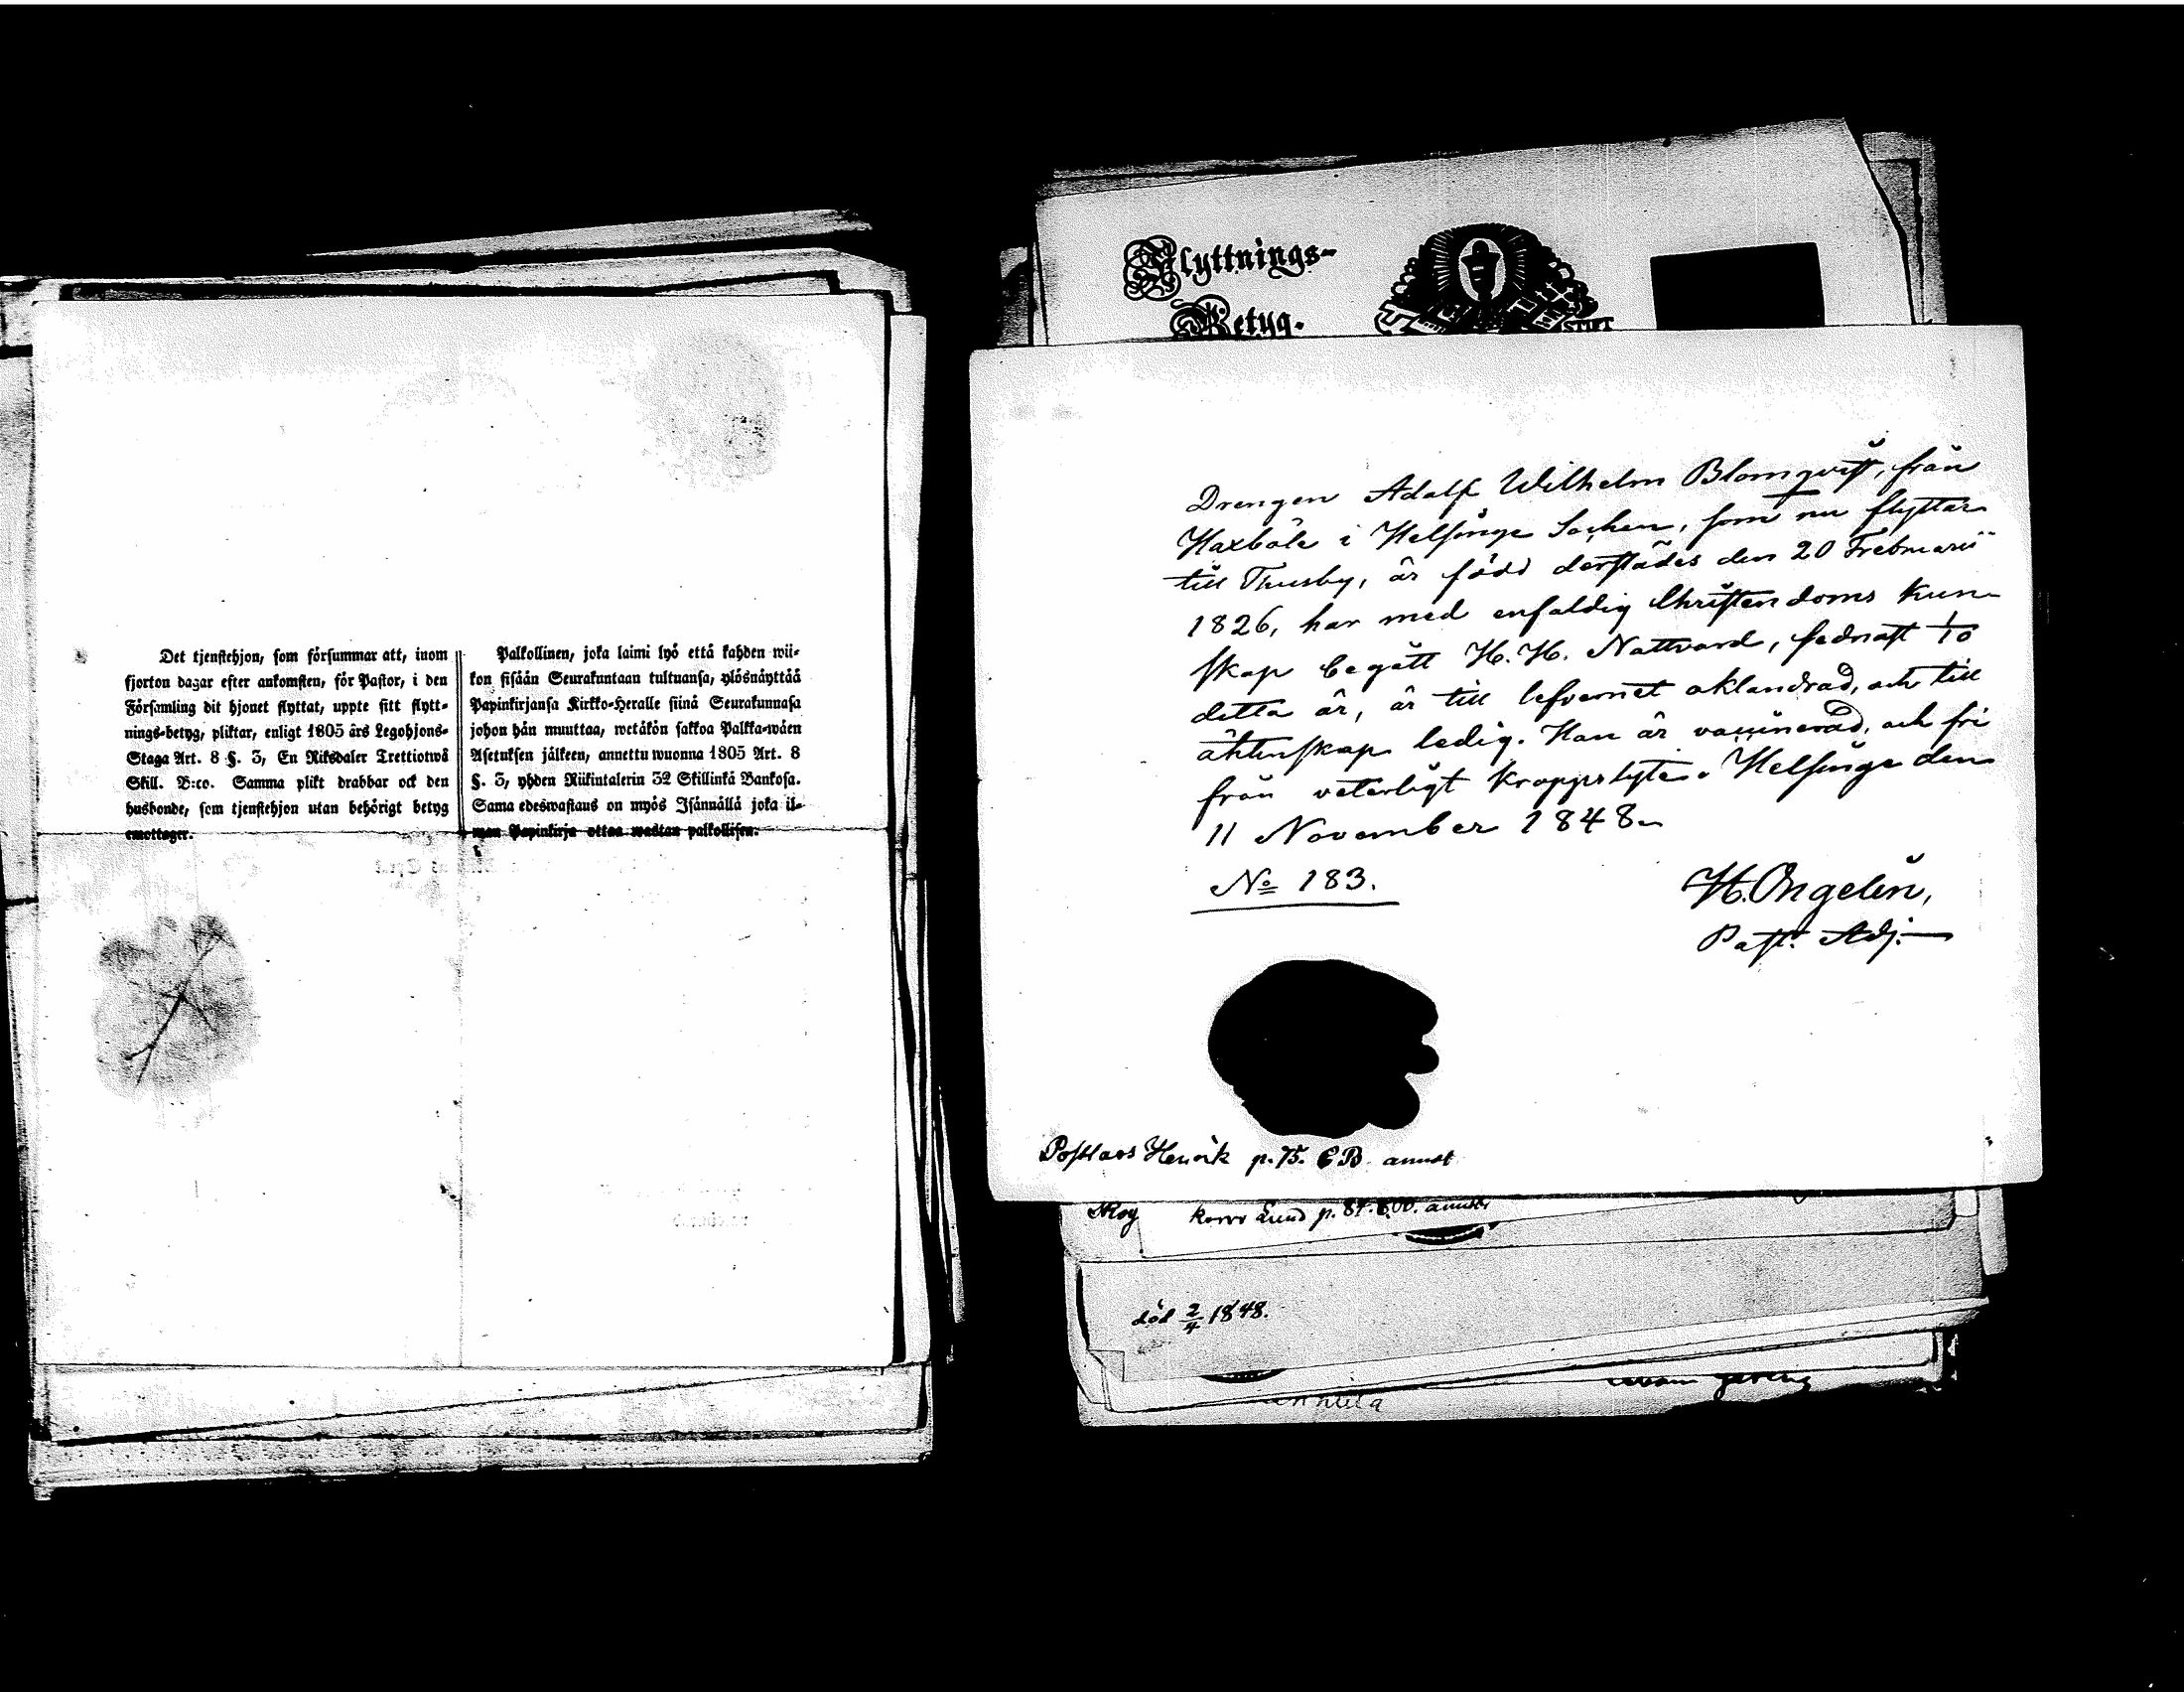 Det tjenstehjon, som försummar att, inom
fjorton dagar efter ankomsten, för Pastor, i den
Församling dit hjonet flyttat, uppte sitt flytt-
nings-betyg, pliktar, enligt 1805 års Legohjons-
Staga Art. 8 §. 3, En Riksdaler Trettiotwå
Skill. B:co. Samma plikt drabbar ock den
husbonde, som tjenstehjon utan behörigt betyg
emottager.
Palkollinen, joka laimi lyö että kahden wii-
kon sisään Seurakuntaan tultuansa, ylösnäyttää
Papinkirjansa Kirkko-Heralle siinä Seurakunnasa
johon hän muuttaa, wetäkön sakkoa Palkka-wäen
Asetuksen jälkeen, annettu wuonna 1805 Art. 8
§. 3, yhden Riikintalerin 32 Skillinkä Bankosa.
Sama edeswastaus on myös Isännällä joka il-
man Papinkirja ottaa wastan palkollisen.
Flyttnings-
Betyg.
Drengen Adolf Wilhelm Blomqvist, från
Haxböle i Helsinge Sochen, som nu flyttar
till Thusby, är född derstädes den 20 Frebruarii
1826, har med enfaldig Christendoms kun-
skap begått H. H. Nattvard, sednast 1/10
detta år, är till lefvernet oklandrad, och till
ächtenskap ledig. Han är vaccinerad, och fri
från veterligt kroppslyte. Helsinge den
11 November 1848.
No 183.
H. Ongelin,
Past. Adj.
Postlars Henrik p. 75. EB annot
Skog korro Lund p. 87. annot.
död 2/4 1848.